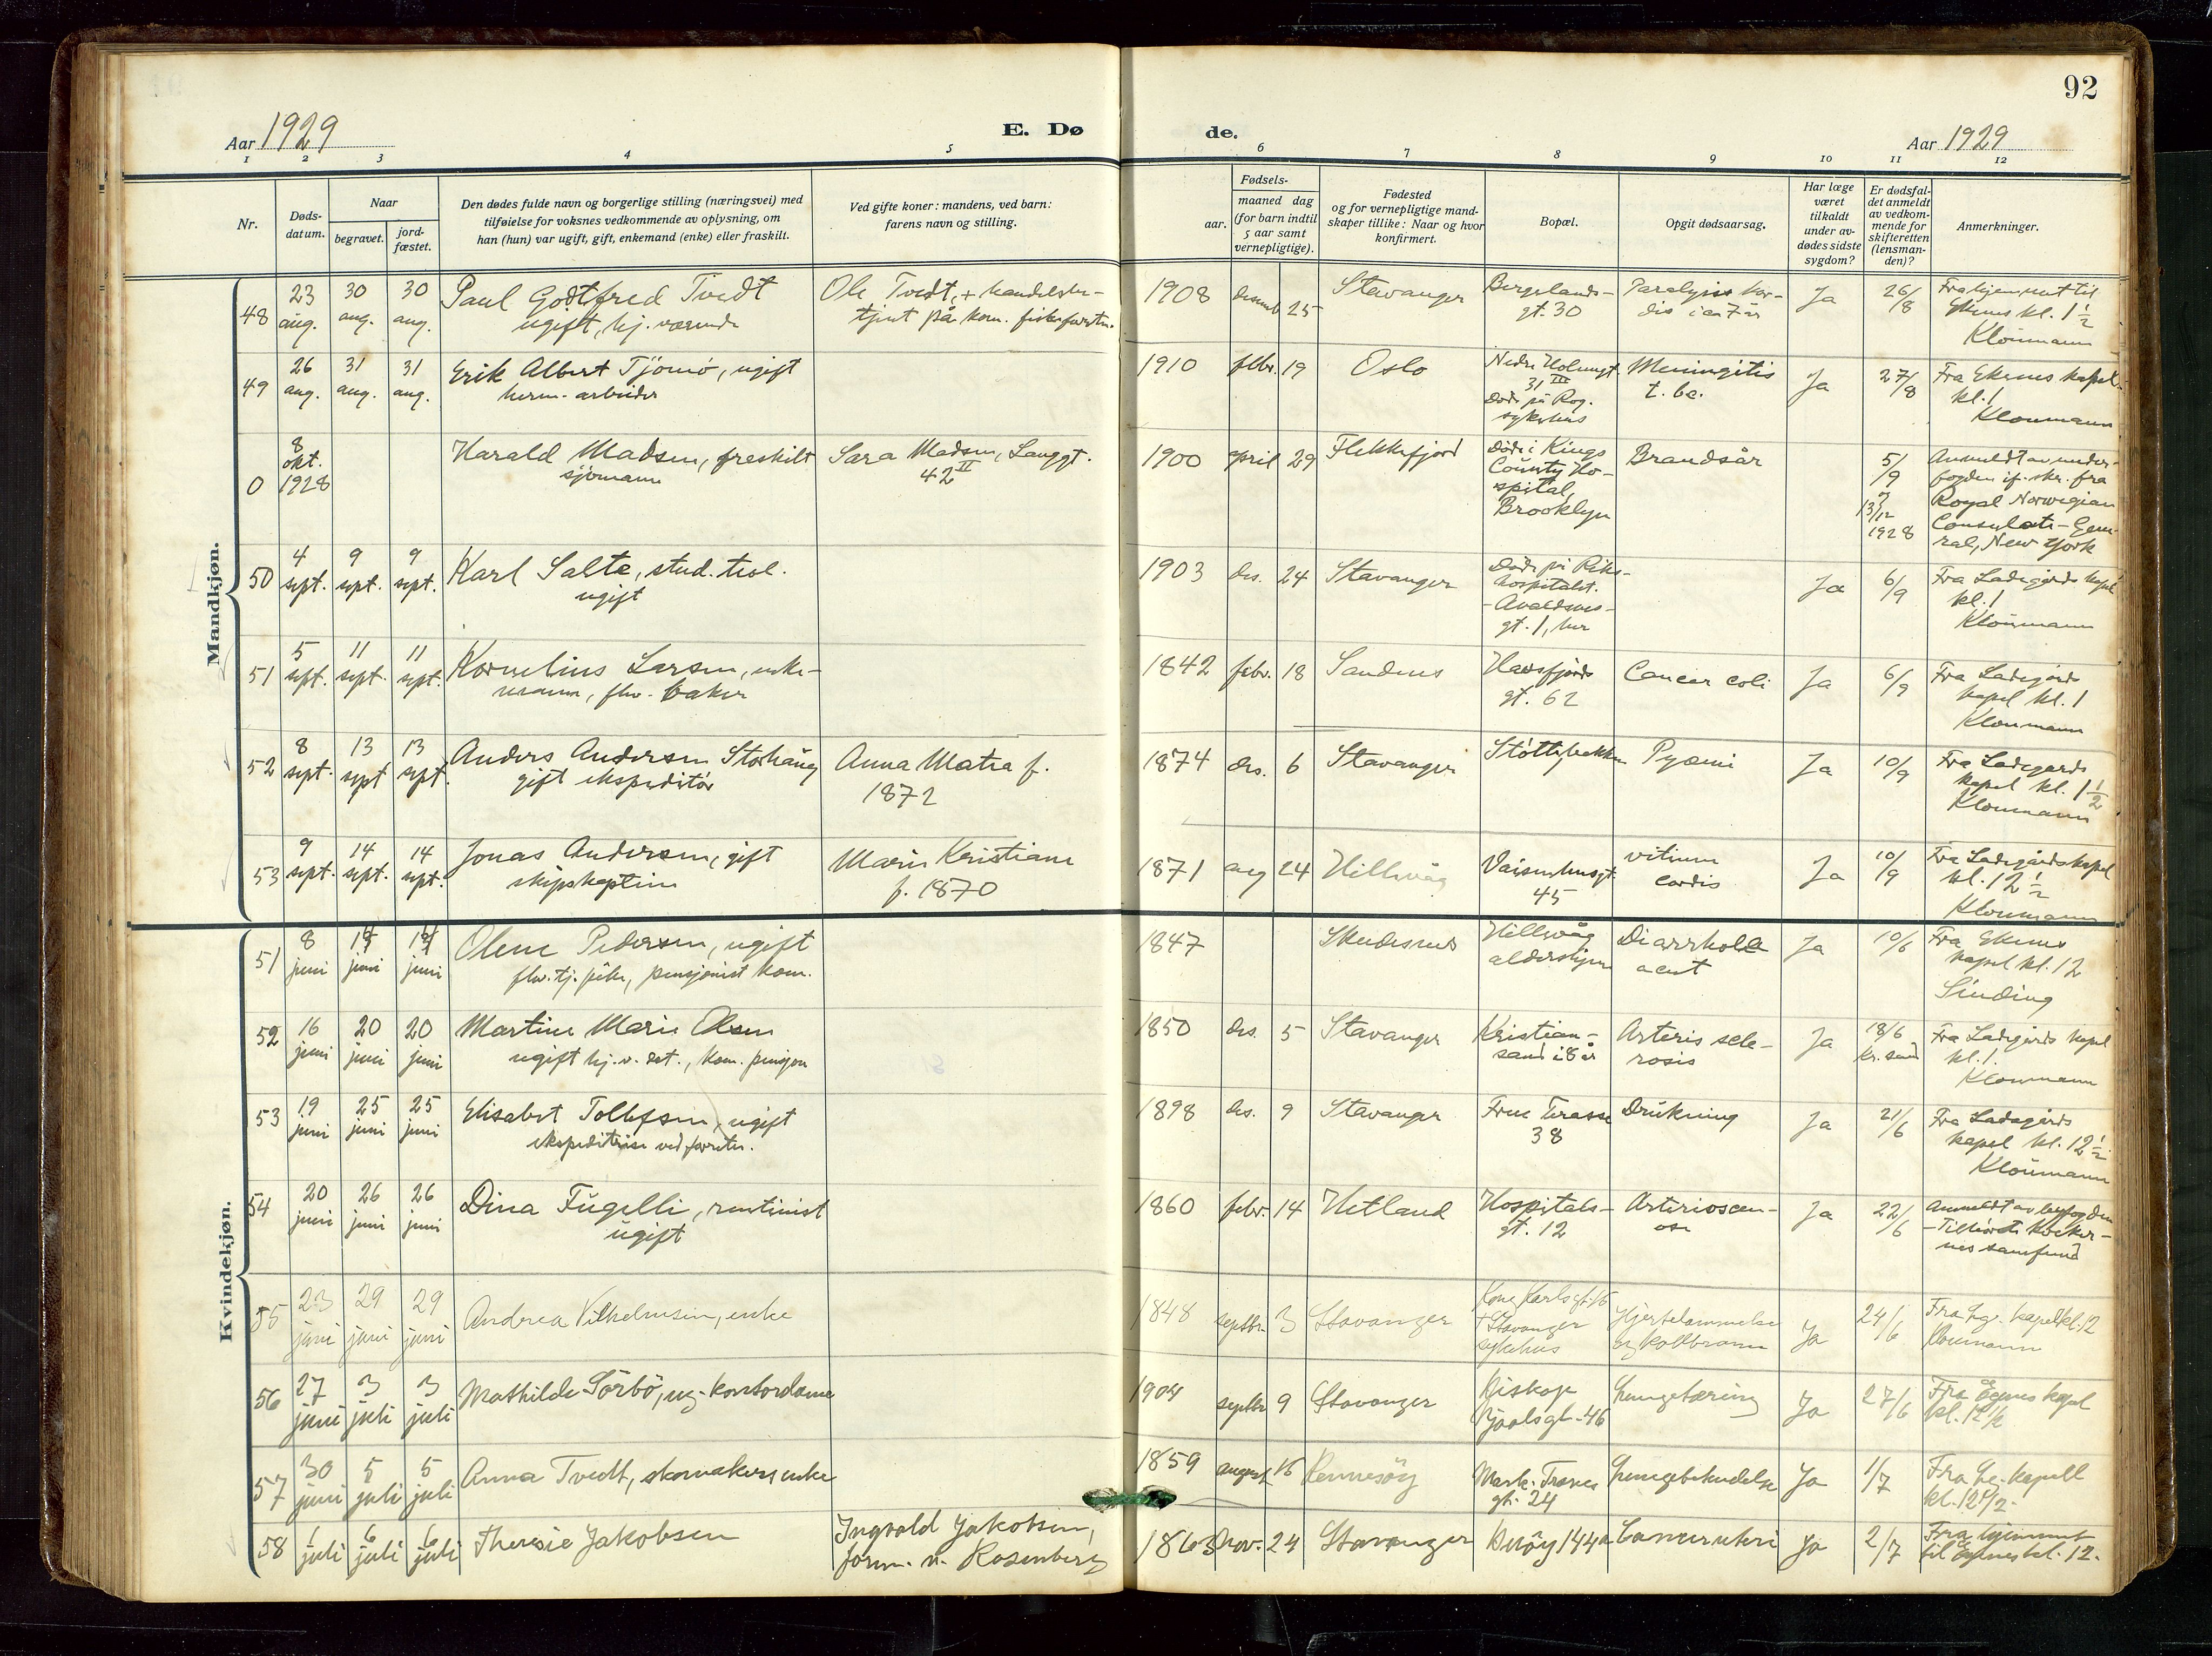 92
Aar 1929
E. Dø
de.
Aar 1929
1 2 3 4 5 6 7 8 9 10 11 12
Nr.
Døds-
datum.
Naar
begravet.
jord-
fæstet.
Den dødes fulde navn og borgerlige stilling (næringsvei) med
tilføielse for voksnes vedkommende av oplysning, om
han (hun) var ugift, gift, enkemand (enke) eller fraskilt.
Ved gifte koner: mandens, ved barn:
farens navn og stilling.
Fødsels-
aar.
maaned dag
(for barn indtil
5 aar samt
vernepligtige).
Fødested
og for vernepligtige mand-
skaper tillike: Naar og hvor
konfirmert.
Bopæl.
Opgit dødsaarsag.
Har læge
været
tilkaldt
under av-
dødes sidste
sygdom?
Er dødsfal-
det anmeldt
av vedkom-
mende for
skifteretten
(lensman-
den)?
Anmerkninger.
Mandkjøn.
48 23 aug. 30 aug. 30 aug. Paul Godtfred Tvedt
ugift, hj. værende
Ole Tvedt, +
tjent på kom.
1908 25 Stavanger
Bergelands-
gt. 30
Paralysis cor-
dis i ca 7 år
Ja 26/8
Fra hjemmet til
Ekenes kl. 1 1/2
Kloumann
49 26 aug. 31 aug. 31 aug. Erik Albert Tjømø, ugift
herm. arbeider
1910 febr. 19 Oslo
Nedre Holmegt.
31 III
Døde på Rog.
sykehus
Meningitis
t. bc.
Ja 27/8
Fra Ekenes kapel
kl. 1
Kloumann
0 8 okt. 1928 Harald Madsen, fraskilt
sjømann
Sara Madsen, Langgt.
42 II
1900 april 29 Flekkefjord
Døde i Kings
County Ho-
spital,
Brooklyn
Brandsår
5/9
13/12
1928
Anmeldt av under-
fogden if. skr. fra
Royal Norwegian
Consulate-Gene-
ral, New York
50 4 sept. 9 sept. 9 sept. Karl Salte, stud. teol.
ugift
1903 des. 24 Stavanger
Døde på Riks-
hospitalet.
-Avaldsnes-
gt. 1, her
Ja 6/9
Fra Ladegårds kapel
kl. 1
Kloumann
51 5 sept. 11 sept. 11 sept. Kornelius Larsen, enke-
mann, fhv. baker
1842 febr. 18 Sandnes
Havsfjords
gt. 62
Cancer coli
Ja 6/9
Fra Ladegårds
kapel kl. 1
Kloumann
52 8 sept. 13 sept 13 sept. Anders Andersen Storhaug
gift ekspeditør
Anna Matea f.
1872
1874 des. 6 Stavanger
Støttebakken
Pyæmi
Ja 10/9
Fra Ladegårds
kapel kl. 1 1/2
Kloumann
53 9 sept. 14 sept. 14 sept. Jonas Andersen, gift
skipskaptein
Marie Kristiane
f. 1870
1871 aug 24 Hillevåg
Vaisenhusgt.
45
vitium
cordis
Ja 10/9
Fra Ladegårds kapel
kl. 12 1/2
Kloumann
Kvindekjøn.
51 8 juni juni juni Olene Pedersen, ugift
fhv. tj. pike, pensjonist kom.
1847 Skudesnes
Hillevåg
aldershjem
Diarrhoe
acut
Ja 10/6
Fra Ekenes
kapel kl. 12
Sinding
52 16 juni 20 juni 20 juni Martine Marie Olsen
ugift hj. v. , kom. pensjon
1850 des. 5 Stavanger
Kristian-
sand i 8 år
Arteris scle-
rosis
Ja 18/6
kr. sand
Fra Ladegårds kapel
kl. 1.
Kloumann
53 19 juni 25 juni 25 juni Elisabet Tollefsen, ugift
ekspeditrise ved forretn.
1898 des. 9 Stavanger
Frue Terasse
38
Drukning
Ja 21/6
Fra Ladegårds
kapel kl. 12 1/2
Kloumann
54 20 juni 26 juni 26 juni Dina Fugelli, rentinist
ugift
1860 febr. 14 Hetland
Hospitals-
gt. 12
Ja 22/6
Anmeldt av byfogden
- Tilhørte kveker-
nes samfund
55 23 juni 29 juni 29 juni Andrea Vilhelmsen, enke
1848 septbr. 3 Stavanger
Kong Karlsgt. 16
+ Stavanger
sykehus
Hjertelammelse
og koldbrann
Ja 24/6
Fra Lg. kapel kl. 12
Kloumann
56 27 juni 3 juli 3 juli Mathilde Sørbø, ug. kontordame
1904 septbr 9 Stavanger
Biskop
Njaalsgt. 46
Lungetæring
Ja 27/6
Fra Egenes kapel
kl. 12 1/2
57 30 juni 5 juli 5 juli Anna Tvedt, skomakers enke
1859 august 16 Rennesøy
Mark.
gt. 24
Lungebetendelse
Ja 1/7
Fra Lg. kapell
kl. 12 1/2.
58 1 juli 6 juli 6 juli Theresie Jakobsen
Ingvald Jakobsen,
form. v. Rosenberg
1863 nov. 24 Stavanger
Buøy 144a
Cancer uteri
Ja 2/7
Fra hjemmet
til Egenes kl. 12.